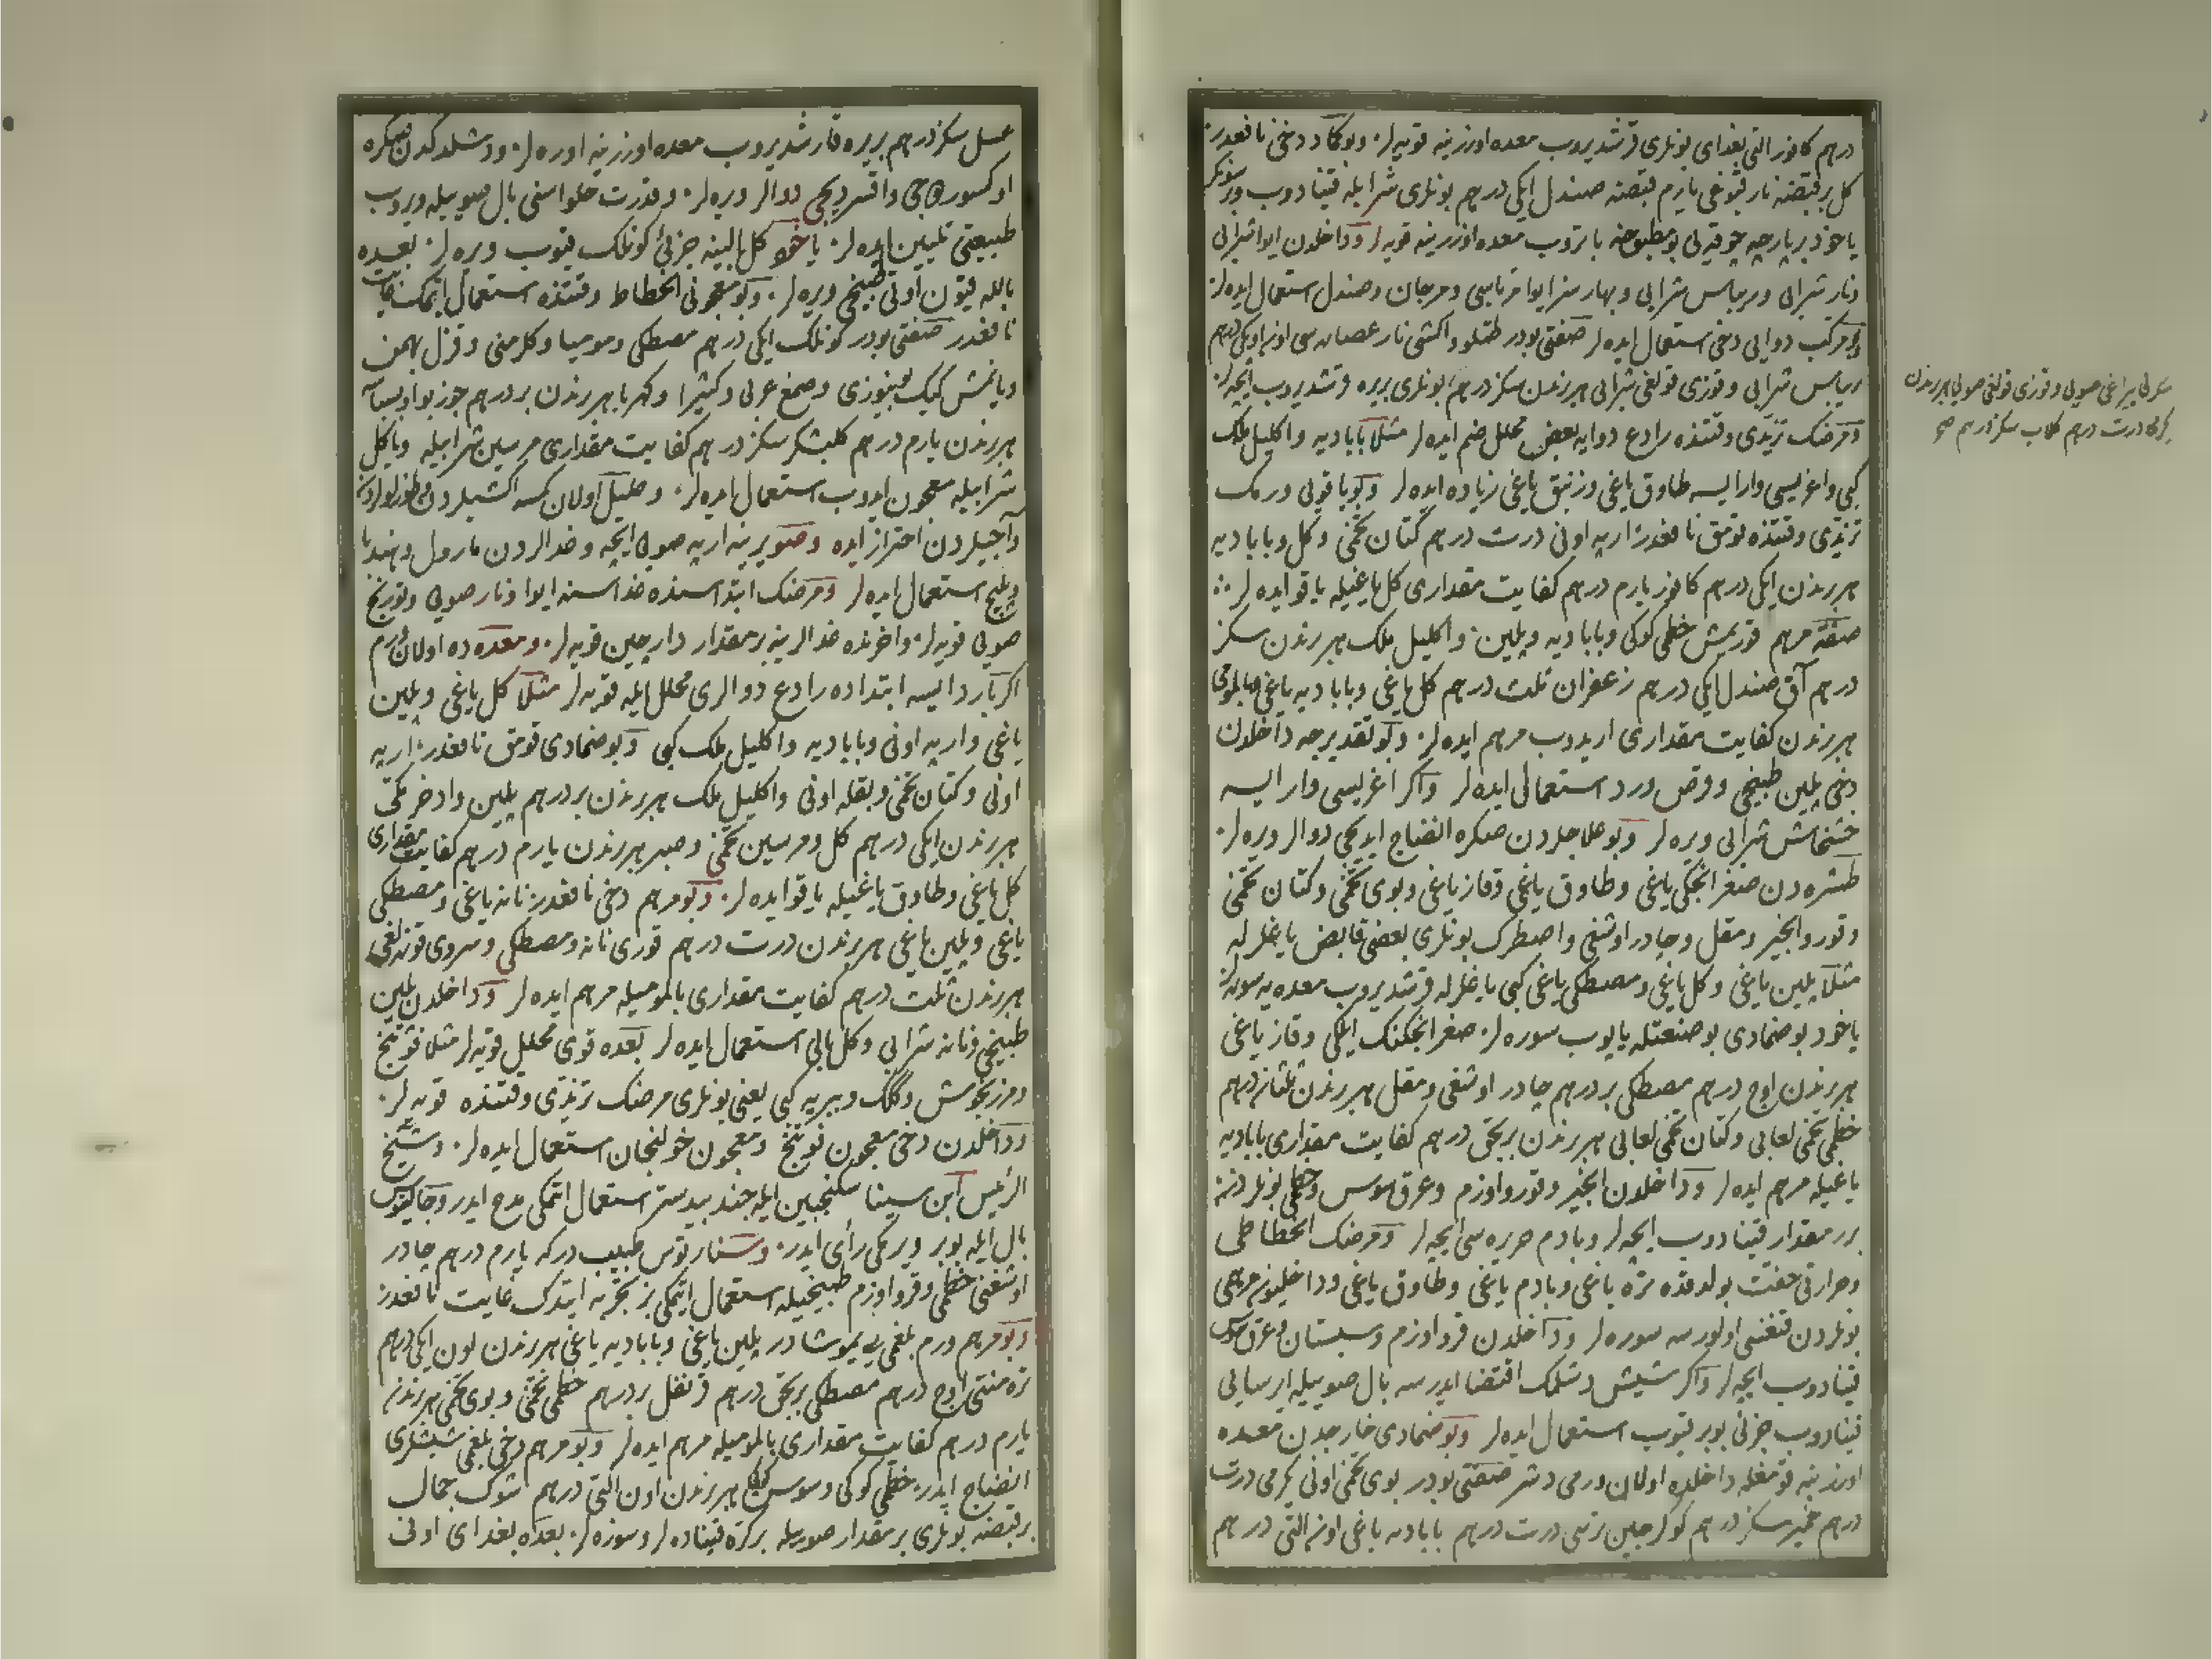 درهم کافور التی بغدای بونلری قرشدیروب معده اوزرینه قویه لر و بو کماد دخی نافعدر
کل بر قبضه نار قبوغی یارم قبضه صندل ایکی درهم بونلری شرابله قینادوب ویر سونکر
یاخود بر پارچه چوقه یی بو مطبوخه باتروب معده اوزرینه قویه لر و داخلدن ایوا شرابی
و نار شرابی و ریباس شرابی و بهار سز ایوا مرباسی و مرجان و صندل استعمال ایده لر
و بو مرکب دوایی دخی استعمال ایده لر صنعتی بودر طتلو و اکشی نار عصاره سی اون ایکی درهم
ریباس شرابی و قوزی قولغی شرابی هر برندن سکز درهم بونلری بربره قرشدیروب ایچه لر
و مرضک تزیدی وقتنده رادع دوایه بعض محلل ضم ایده لر مثلا بابادیه و اکلیل ملک
کبی و اغریسی وار ایسه طاوق یاغی و زنبق یاغی زیاده ایده لر و بو یاقویی ورمک
تزیدی وقتنده قومق نافعدر ارپه اونی درت درهم کتان تخمی و کل و بابادیه
هر برندن ایکی درهم کافور یارم درهم کفایت مقداری کل یاغیله یاقو ایده لر
صفة مرهم قوریمش خطمی کوکی و بابادیه و پلین و اکلیل ملک هر برندن سکز
درهم آق صندل ایکی درهم زعفران ثلث درهم کل یاغی و بابادیه یاغی و بالمومی
هر برندن کفایت مقداری اریدوب مرهم ایده لر و بو تقدیرجه داخلدن
دخی پلین طبیخی و قرص ورد استعمالی ایده لر و اکر اغریسی وار ایسه
خشخاش شرابی ویره لر و بو علاجلردن صکره انضاج ایدیجی دوالر ویره لر
طشره دن صغر ایچکی یاغی و طاوق یاغی و قاز یاغی و بوی تخمی و کتان تخمی
و قورو انجیر و مقل و چادر اوشغی و اصطرک بونلری بعض قابض یاغلر له
مثلا پلین یاغی و کل یاغی و مصطکی یاغی کبی یاغلر له قرشدیروب معده یه سوره لر
یاخود بو ضمادی بو صنعتله یاپوب سوره لر صغر انجکنک ایلکی و قاز یاغی
هر برندن اوچ درهم مصطکی بر درهم چادر اوشغی و مقل هر برندن ثلثان درهم
خطمی تخمی لعابی و کتان تخمی لعابی هر برندن بر بچق درهم کفایت مقداری بابادیه
یاغیله مرهم ایده لر و داخلدن انجیر و قورو اوزم و عرق سوس و خطمی بونلردن
بر مقدار قینادوب ایچه لر و بادم حریره سی ایچه لر و مرضک انحطاطی
و حرارتی خفت بولدقده تره یاغی و بادم یاغی و طاوق یاغی و داخلیون مرهمی
بونلردن قنغسی اولورسه سوره لر و داخلدن قرو اوزم و سبستان و عرق سوس
قینادوب ایچه لر و اکر شیش دشلمک اقتضا ایدرسه بال صویبله ایرسایی
قینادوب جزئی بوبر قیوب استعمال ایده لر و بو ضمادی خارجدن معده
اوزرینه قومغله داخلده اولان ورمی دشر صنعتی بودر بوی تخمی اونی یکرمی درت
درهم خمیر سکز درهم کوکرجین ترسی درت درهم بابادیه یاغی اون التی درهم
درت درهم کلاب سکز درهم صح
عسل سکز درهم بربره قارشدیروب معده اوزرینه اوره لر و دشلدکدن صکره
اوکسورجی و اقسردیجی دوالر ویره لر و قدرت حلواسنی بال صویبله ویروب
طبیعتی تلیین ایده لر یاخود کل البینه جزئی کونلک قیوب ویره لر بعده
بالله قیون اوتی طبیخی ویره لر و بو معجونی انحطاط وقتنده استعمال ایتمک غایت
نافعدر صنعتی بودر کونلک ایکی درهم مصطکی و مومیا و کل ارمنی و قزل بهمن
و یانمش کیک بوینوزی و صمغ عربی و کثیرا و کهربا هر برندن بر درهم جوز بوا و بسباسه
هر برندن یارم درهم کلبشکر سکز درهم کفایت مقداری مرسین شرابیله و یا کل
شرابیله معجون ایدوب استعمال ایده لر و علیل اولان کسه اکشیلردن و طوزلولردن
و آجیلردن احتراز ایده و صو یرینه ارپه صویی ایچه و غدالردن مارول و هندبا
استعمال ایده لر و مرضک ابتداسنده غداسنه ایوا و نار صویی و تورنج
صویی قویه لر و اخرنده غدالرینه بر مقدار دارچین قویه لر و معده ده اولان ورم
اکر بارد ایسه ابتداده رادع دوالری محلل ایله قویه لر مثلا کل یاغی و پلین
یاغی و ارپه اونی و بابادیه و اکلیل ملک کبی و بو ضمادی قومق نافعدر ارپه
اونی و کتان تخمی و بقله اونی و اکلیل ملک هر برندن بر درهم پلین و اذخر مکی
هر برندن ایکی درهم کل و مرسین تخمی و صبر هر برندن یارم درهم کفایت مقداری
کل یاغی و طاوق یاغیله یاقو ایده لر و بو مرهم دخی نافعدر نانه یاغی و مصطکی
یاغی و پلین یاغی هر برندن درت درهم قوری نانه و مصطکی و سروی قوزلغی
هر برندن ثلث درهم کفایت مقداری بالمومیله مرهم ایده لر و داخلدن پلین
طبیخی و نانه شرابی و کل بالی استعمال ایده لر بعده قوی محلل قویه لر مثلا فوتنج
و مرزنجوش و ککک و بیریه کبی یعنی بونلری مرضک تزیدی وقتنده قویه لر
و داخلدن دخی معجون فوتنج و معجون خولنجان استعمال ایده لر و شیخ
الرئیس ابن سینا سکنجبین ایله جندبیدستر استعمال اتمکی مدح ایدر و جالینوس
بال ایله بوبر ویرمکی رأی ایدر و سنارتوس طبیب درکه یارم درهم چادر
اوشغنی خطمی و قرو اوزم طبیخیله استعمال ایتمکی بز تجربه ایتدک غایت نافعدر
و بو مرهم ورم بلغمی یی یموشادر پلین یاغی و بابادیه یاغی هر برندن اون ایکی درهم
تره منتی اوچ درهم مصطکی بر بچق درهم قرنفل بر درهم خطمی تخمی و بوی تخمی هر برندن
یارم درهم کفایت مقداری بالمومیله مرهم ایده لر و بو مرهم دخی بلغمی شیشلری
انضاج ایدر خطمی کوکی و سوسن کوکی هر برندن اون التی درهم شوک جمال
بر قبضه بونلری بر مقدار صویله برکزه قیناده لر و سوزه لر بعده بغدای اونی